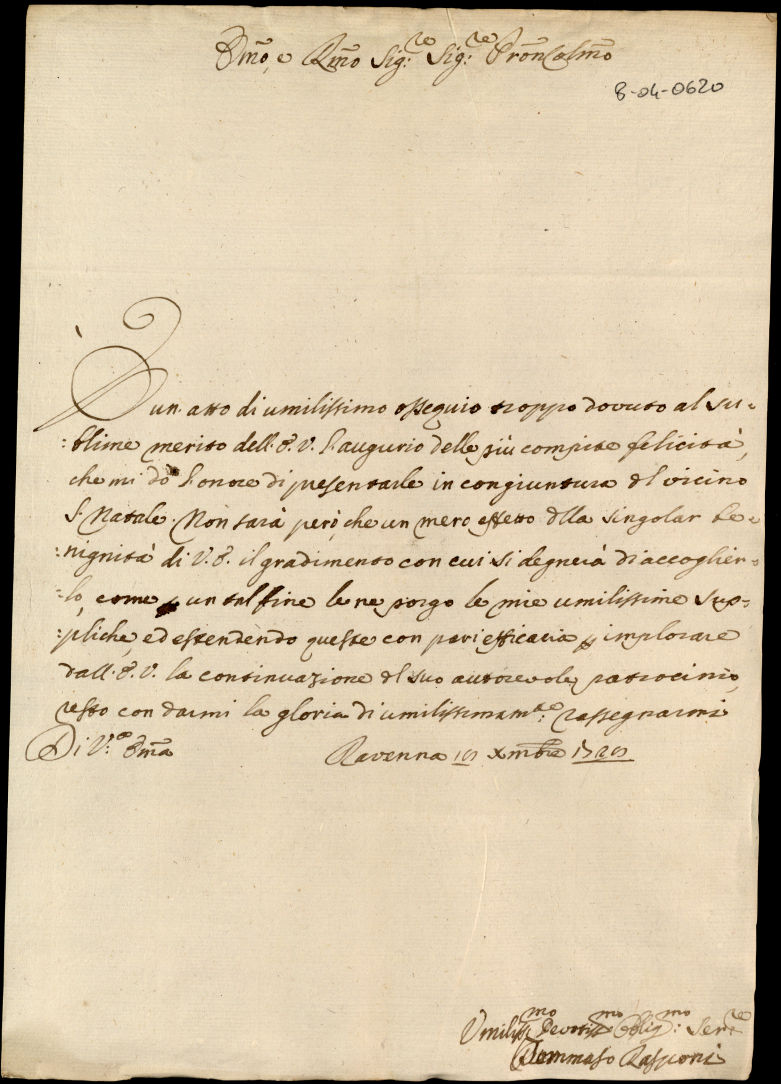 Emo, e Rmo Sig:re Sig:re Pron Colmo
8-04-0620
È un atto di umilissimo ossequio troppo dovuto al su-
:blime merito dell'E.V. l'augurio delle più compite felicità,
che mi dò l'onore di presentarle in congiuntura del vicino
S. Natale. Non sarà però, che un mero effetto della singolar be-
:nignità di V.E. il gradimento con cui si degnerà di accoglier-
:lo, come p un tal fine le ne porgo le mie umilissime sup-
:pliche, ed estendendo queste con pari efficacia p implorare
dall'E.V. la continuazione del suo autorevole patrocinio,
resto con darmi la gloria di umilissimamte: rassegnarmi
Di V.ra Ema Ravenna Xmbre
Umiliss.mo Devotiss.mo Oblig:mo Ser.re
Tommaso Rasponi